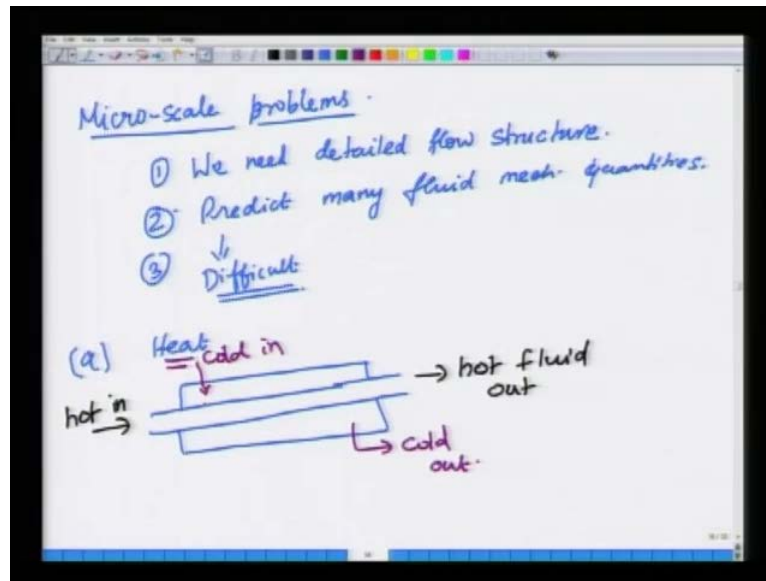 Micro-scale problems.
① We need detailed flow structure.
② Predict many fluid mech. quantities.
③ ⇓
Difficult
(a) Heat cold in
hot in
→ hot fluid
out
cold
out.